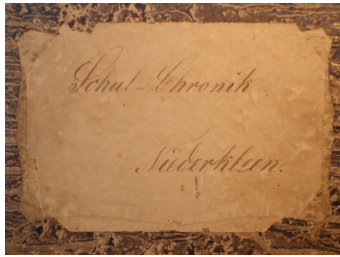 Schul-Chronik
Niederkleen.